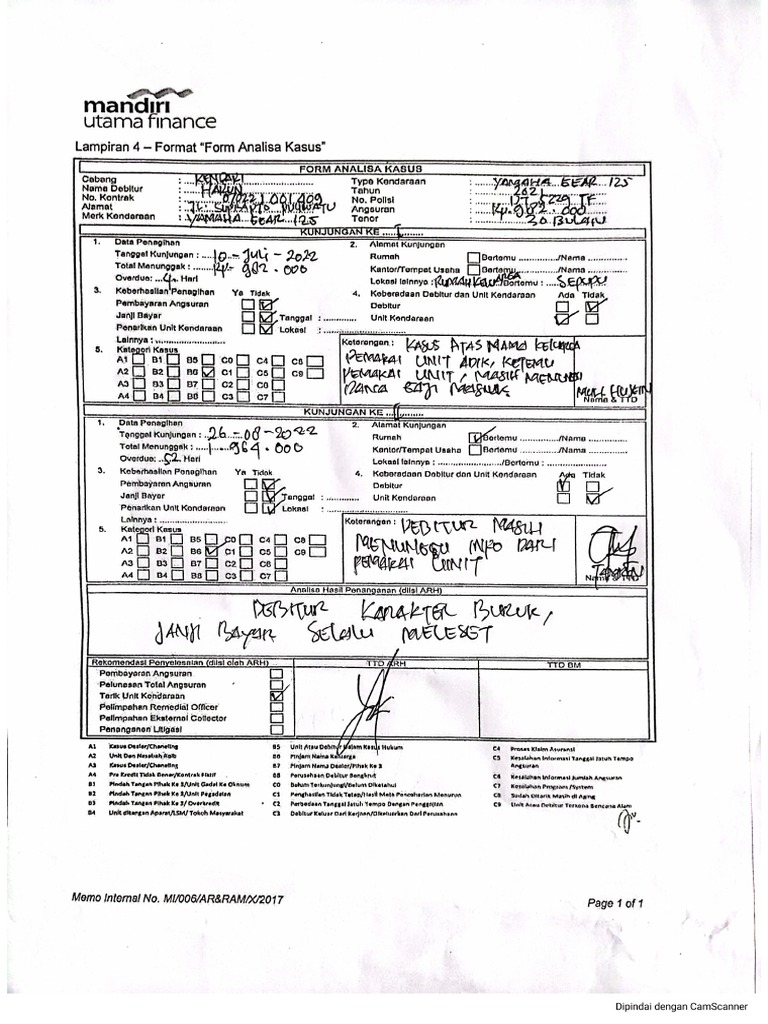 mandiri
utama finance
Lampiran 4 – Format "Form Analisa Kasus"
FORM ANALISA KASUS
Cabang : KENDARI Type Kendaraan : YAMAHA GEAR 125
Nama Debitur : HARUN Tahun : 2021
No. Kontrak : No. Polisi : TF
Alamat : Jl. Angsuran : Rp. 982.000
Merk Kendaraan : YAMAHA GEAR 125 Tenor : 30 BULAN
KUNJUNGAN KE I
1. Data Penagihan 2. Alamat Kunjungan
Tanggal Kunjungan : 10 - Juli - 2022 Rumah Bertemu ............/Nama ............
Total Menunggak : Rp. 982.000 Kantor/Tempat Usaha Bertemu ............/Nama ............
Overdue: 4 Hari Lokasi lainnya : Bertemu : SEPUPU
3. Keberhasilan Penagihan Ya Tidak 4. Keberadaan Debitur dan Unit Kendaraan Ada Tidak
Pembayaran Angsuran Debitur
Janji Bayar Tanggal : ............ Unit Kendaraan
Penarikan Unit Kendaraan Lokasi : ............
Lainnya : ............
5. Kategori Kasus Keterangan : KASUS ATAS NAMA KELUARGA
A1 B1 B5 C0 C4 C8 PEMAKAI UNIT ADIK, KETEMU
A2 B2 B6 C1 C5 C9 PEMAKAI UNIT, MASIH MENUNGGU
A3 B3 B7 C2 C6 DANA GAJI MASUK
A4 B4 B8 C3 C7
Nama & TTD
KUNJUNGAN KE
1. Data Penagihan 2. Alamat Kunjungan
Tanggal Kunjungan : 26 - 08 - 2022 Rumah Bertemu ............/Nama ............
Total Menunggak : 1.964.000 Kantor/Tempat Usaha Bertemu ............/Nama ............
Overdue: 52 Hari Lokasi lainnya : ............/Bertemu : ............
3. Keberhasilan Penagihan Ya Tidak 4. Keberadaan Debitur dan Unit Kendaraan Ada Tidak
Pembayaran Angsuran Debitur
Janji Bayar Tanggal : ............ Unit Kendaraan
Penarikan Unit Kendaraan Lokasi : ............
Lainnya : ............
5. Kategori Kasus Keterangan : DEBITUR MASIH
A1 B1 B5 C0 C4 C8 MENUNGGU INFO DARI
A2 B2 B6 C1 C5 C9 PEMAKAI UNIT
A3 B3 B7 C2 C6
A4 B4 B8 C3 C7
Nama & TTD
Analisa Hasil Penanganan (diisi ARH)
DEBITUR KARAKTER BURUK,
JANJI BAYAR SELALU MELESET
Rekomendasi Penyelesaian (diisi oleh ARH) TTD ARH TTD BM
Pembayaran Angsuran
Pelunasan Total Angsuran
Tarik Unit Kendaraan
Pelimpahan Remedial Officer
Pelimpahan Eksternal Collector
Penanganan Litigasi
A1 Kasus Dealer/Chaneling B5 Unit Atau Debitur Dalam Kasus Hukum C4 Proses Klaim Asuransi
A2 Unit Dan Nasabah Raib B6 Pinjam Nama Keluarga C5 Kesalahan Informasi Tanggal Jatuh Tempo Angsuran
A3 Kasus Dealer/Chaneling B7 Pinjam Nama Dealer/Pihak Ke 3
A4 Pra Kredit Tidak Benar/Kontrak Fiktif B8 Perusahaan Debitur Bangkrut C6 Kesalahan Informasi Jumlah Angsuran
B1 Pindah Tangan Pihak Ke 3/Unit Gadai Ke Oknum C0 Belum Terkunjungi/Belum Diketahui C7 Kesalahan Program/System
B2 Pindah Tangan Pihak Ke 3/Unit Pegadaian C1 Penghasilan Tidak Tetap/Hasil Mata Pencaharian Menurun C8 Sudah Ditarik Masih di Aging
B3 Pindah Tangan Pihak Ke 3/Overkredit C2 Perbedaan Tanggal Jatuh Tempo Dengan Penggajian C9 Unit Atau Debitur Terkena Bencana Alam
B4 Unit ditangan Aparat/LSM/ Tokoh Masyarakat C3 Debitur Keluar Dari Kerjaan/Dikeluarkan Dari Perusahaan
Memo Internal No. MI/006/AR&RAM/X/2017
Page 1 of 1
Dipindai dengan CamScanner